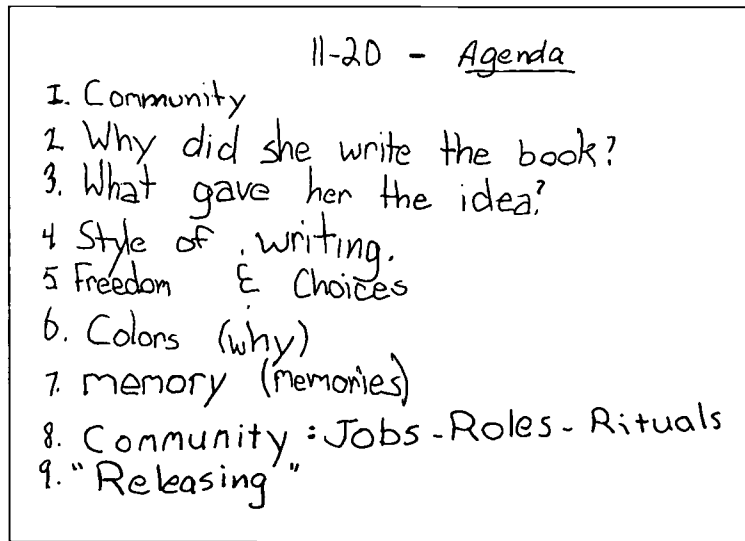 11-20 - Agenda
1. Community
2 Why did she write the book?
3. What gave her the idea?
4 Style of writing.
5 Freedom & Choices
6. Colors (why)
7. memory (memories)
8. Community : Jobs - Roles - Rituals
9. "Releasing"